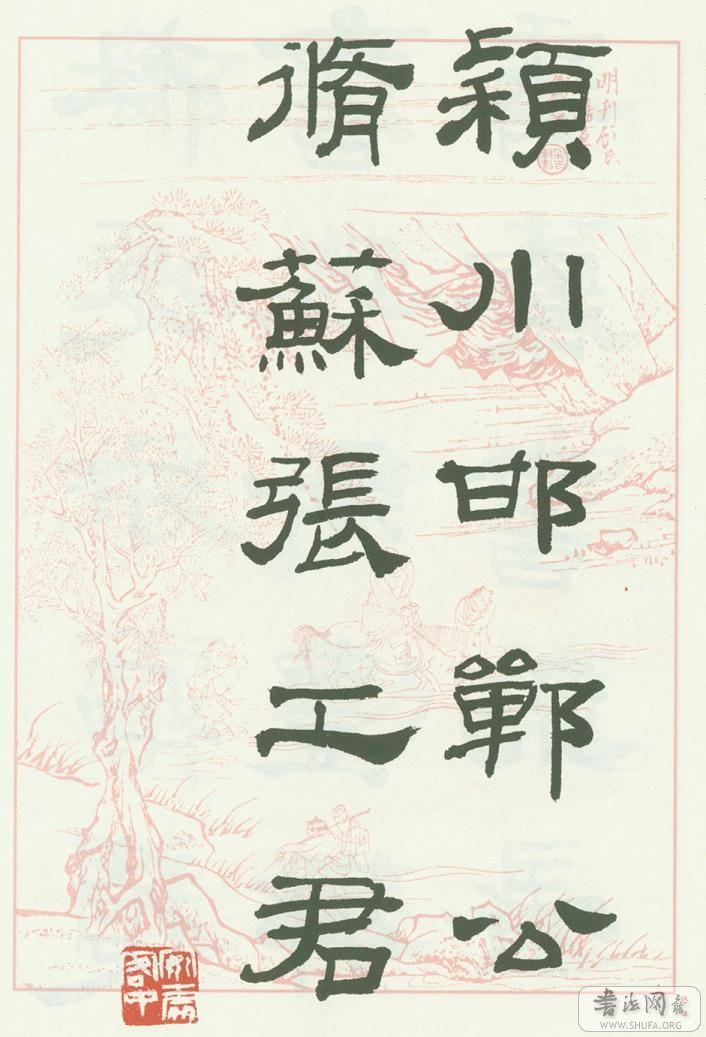 穎川邯鄲公
脩蘇張工君
明刊顧氏
書法网
WWW.SHUFA.ORG